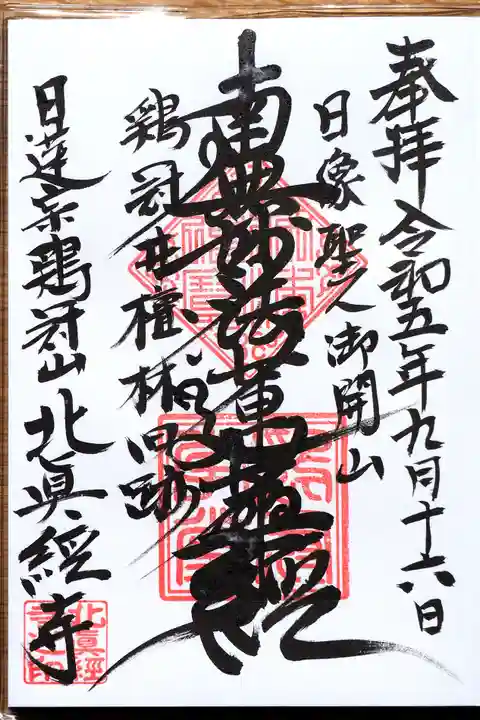 奉拝 令和五年九月十六日
日像聖人御開山
南無妙法蓮華経
鶏冠井檀林旧跡
日蓮宗鶏冠山 北眞経寺
北眞經